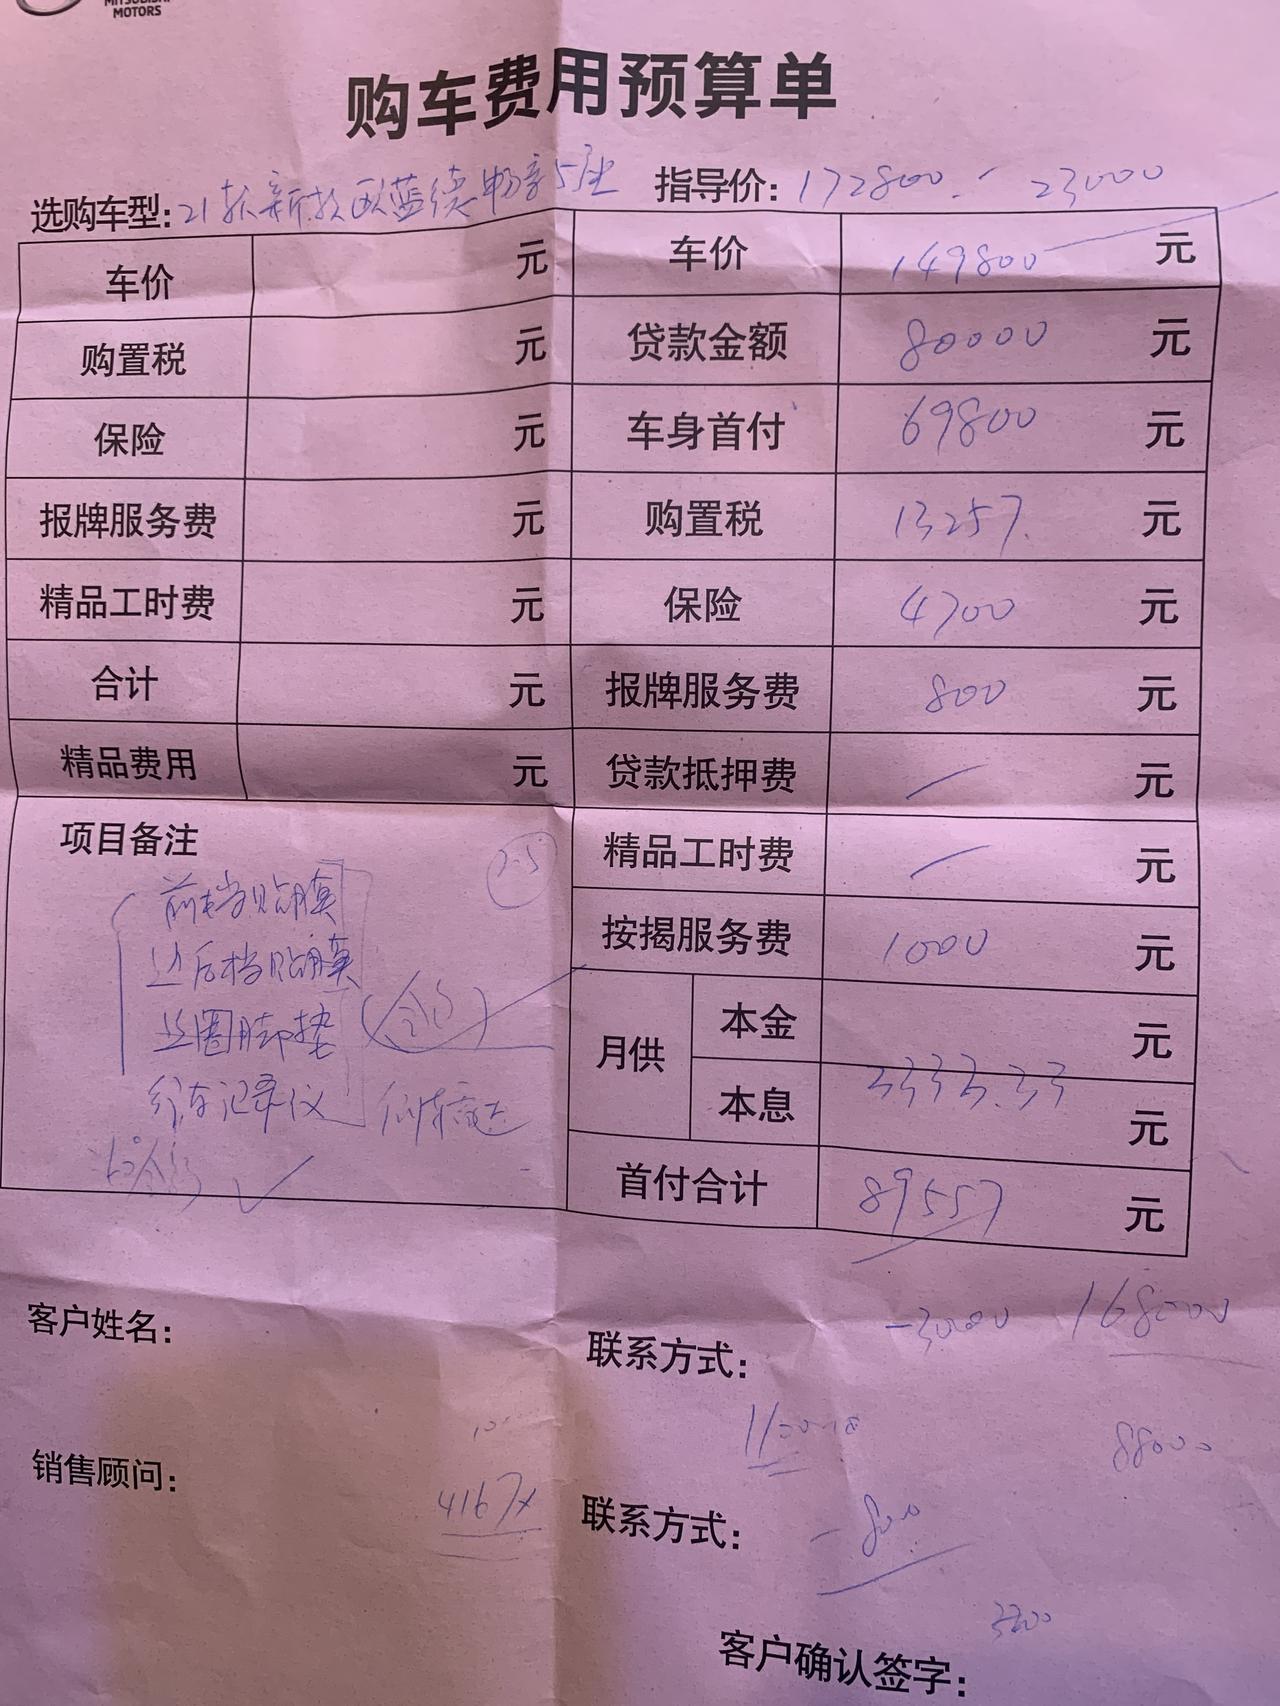 MITSUBISHI
MOTORS
购车费用预算单
选购车型:21款新款欧蓝德畅享5座 指导价:172800 - 23000
车价 元 车价 149800 元
购置税 元 贷款金额 80000 元
保险 元 车身首付 69800 元
报牌服务费 元 购置税 13257. 元
精品工时费 元 保险 4700 元
合计 元 报牌服务费 800 元
精品费用 元 贷款抵押费 — 元
项目备注 精品工时费 — 元
前档贴膜 按揭服务费 1000 元
边后档贴膜 月供 本金 元
丝圈脚垫 本息 3333.33 元
行车记录仪
首付合计 89557 元
客户姓名: 联系方式: -3000 168000
88000
销售顾问: 4167x 联系方式: -800
客户确认签字: